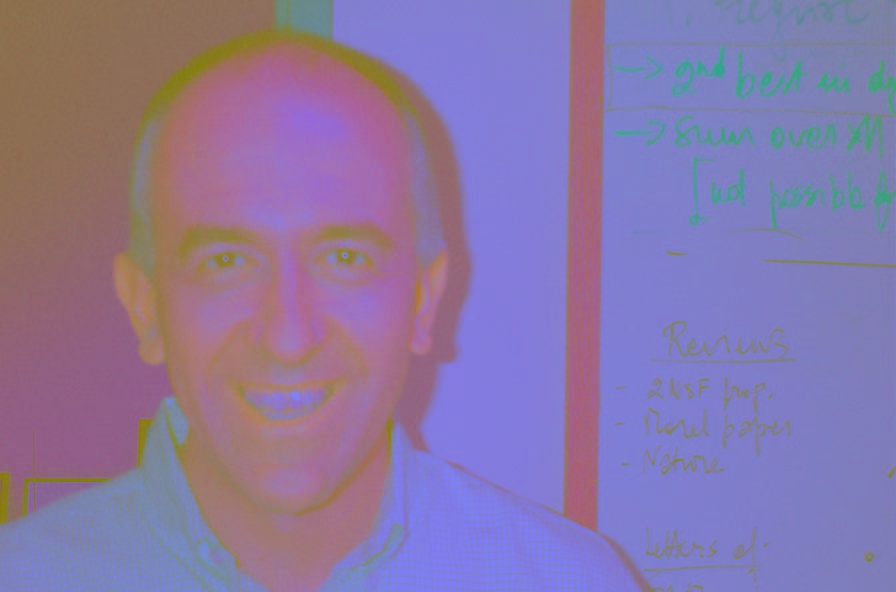 → 2nd best in
→ Sum over all
[not possible
Reviews
- 2 NSF prop.
- Novel paper
- Nature
Letters of